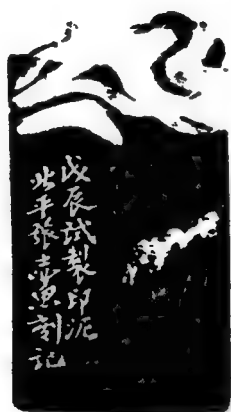 戊辰試製印泥
北平張志魚刻記